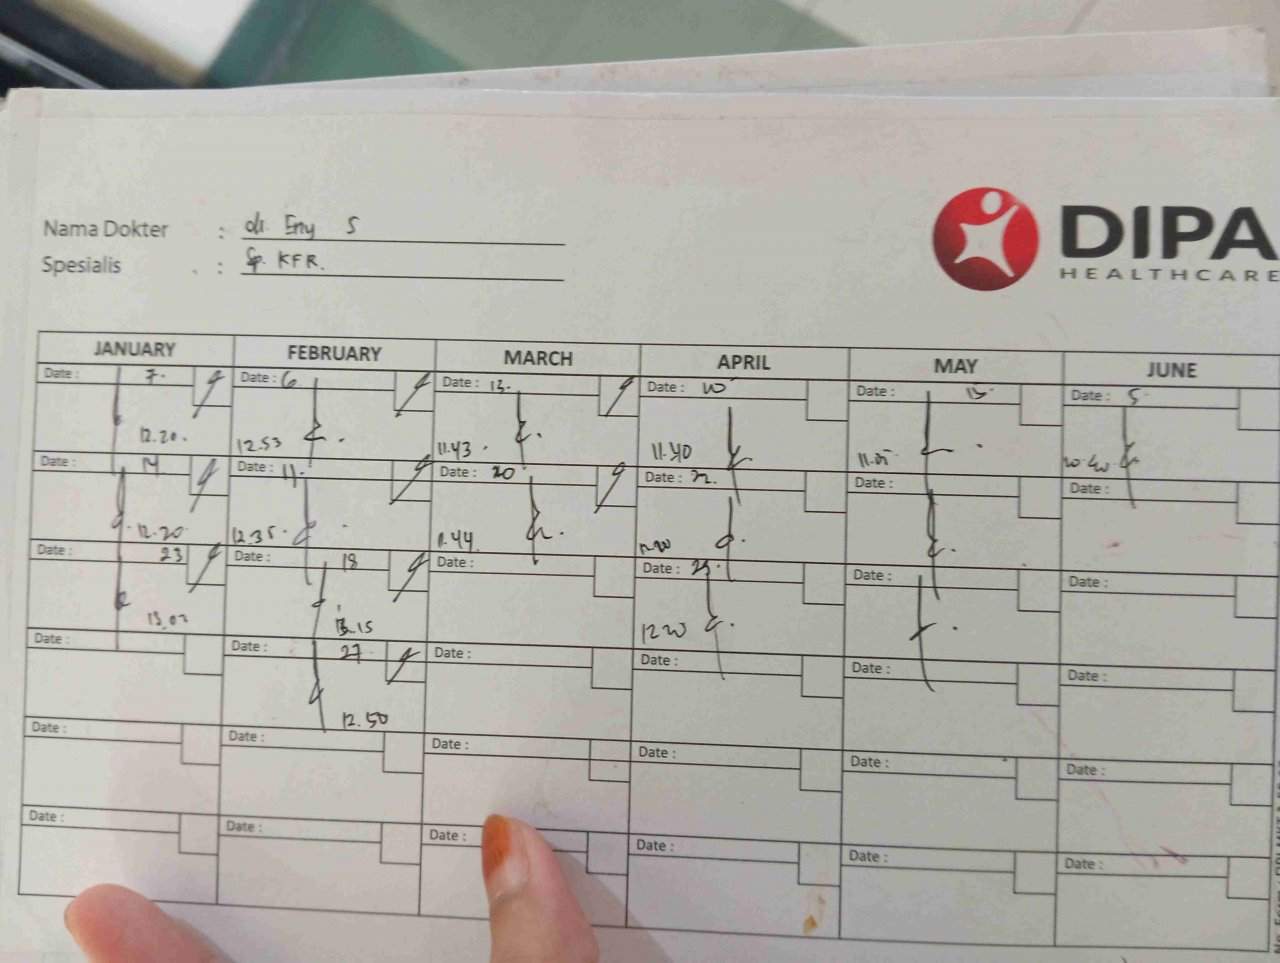 Nama Dokter : dr. Eny S
Spesialis : Sp. KFR.
DIPA
HEALTHCARE
JANUARY FEBRUARY MARCH APRIL MAY JUNE
Date : 7. Date : 6 Date : 13. Date : 10 Date : 15. Date : 5
12.20. 12.53 11.43. 11.40 11.05
Date : 14 Date : 11. Date : 20 Date : 22. Date : Date :
12.20 12.35. 11.44
Date : 23 Date : 18 Date : Date : Date : Date :
13.02 13.15 12.20
Date : Date : 27 Date : Date : Date : Date :
12.50
Date : Date : Date : Date : Date : Date :
Date : Date : Date : Date : Date : Date :